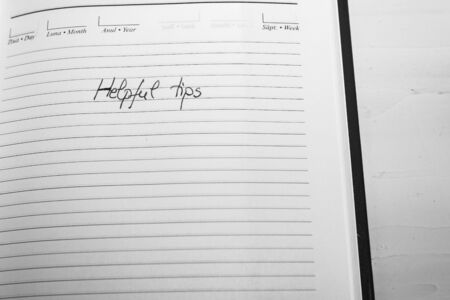 Ziua • Day Luna • Month Anul • Year Săpt. • Week
Helpful tips